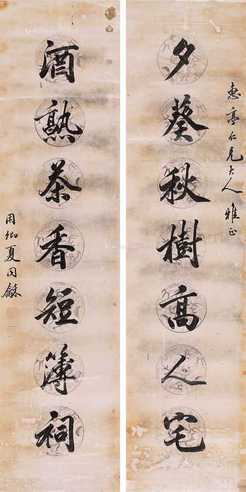 惠亭仁兄大人雅正
夕葵秋樹髙人宅
酒熟茶香短簿祠
用卿夏同龢